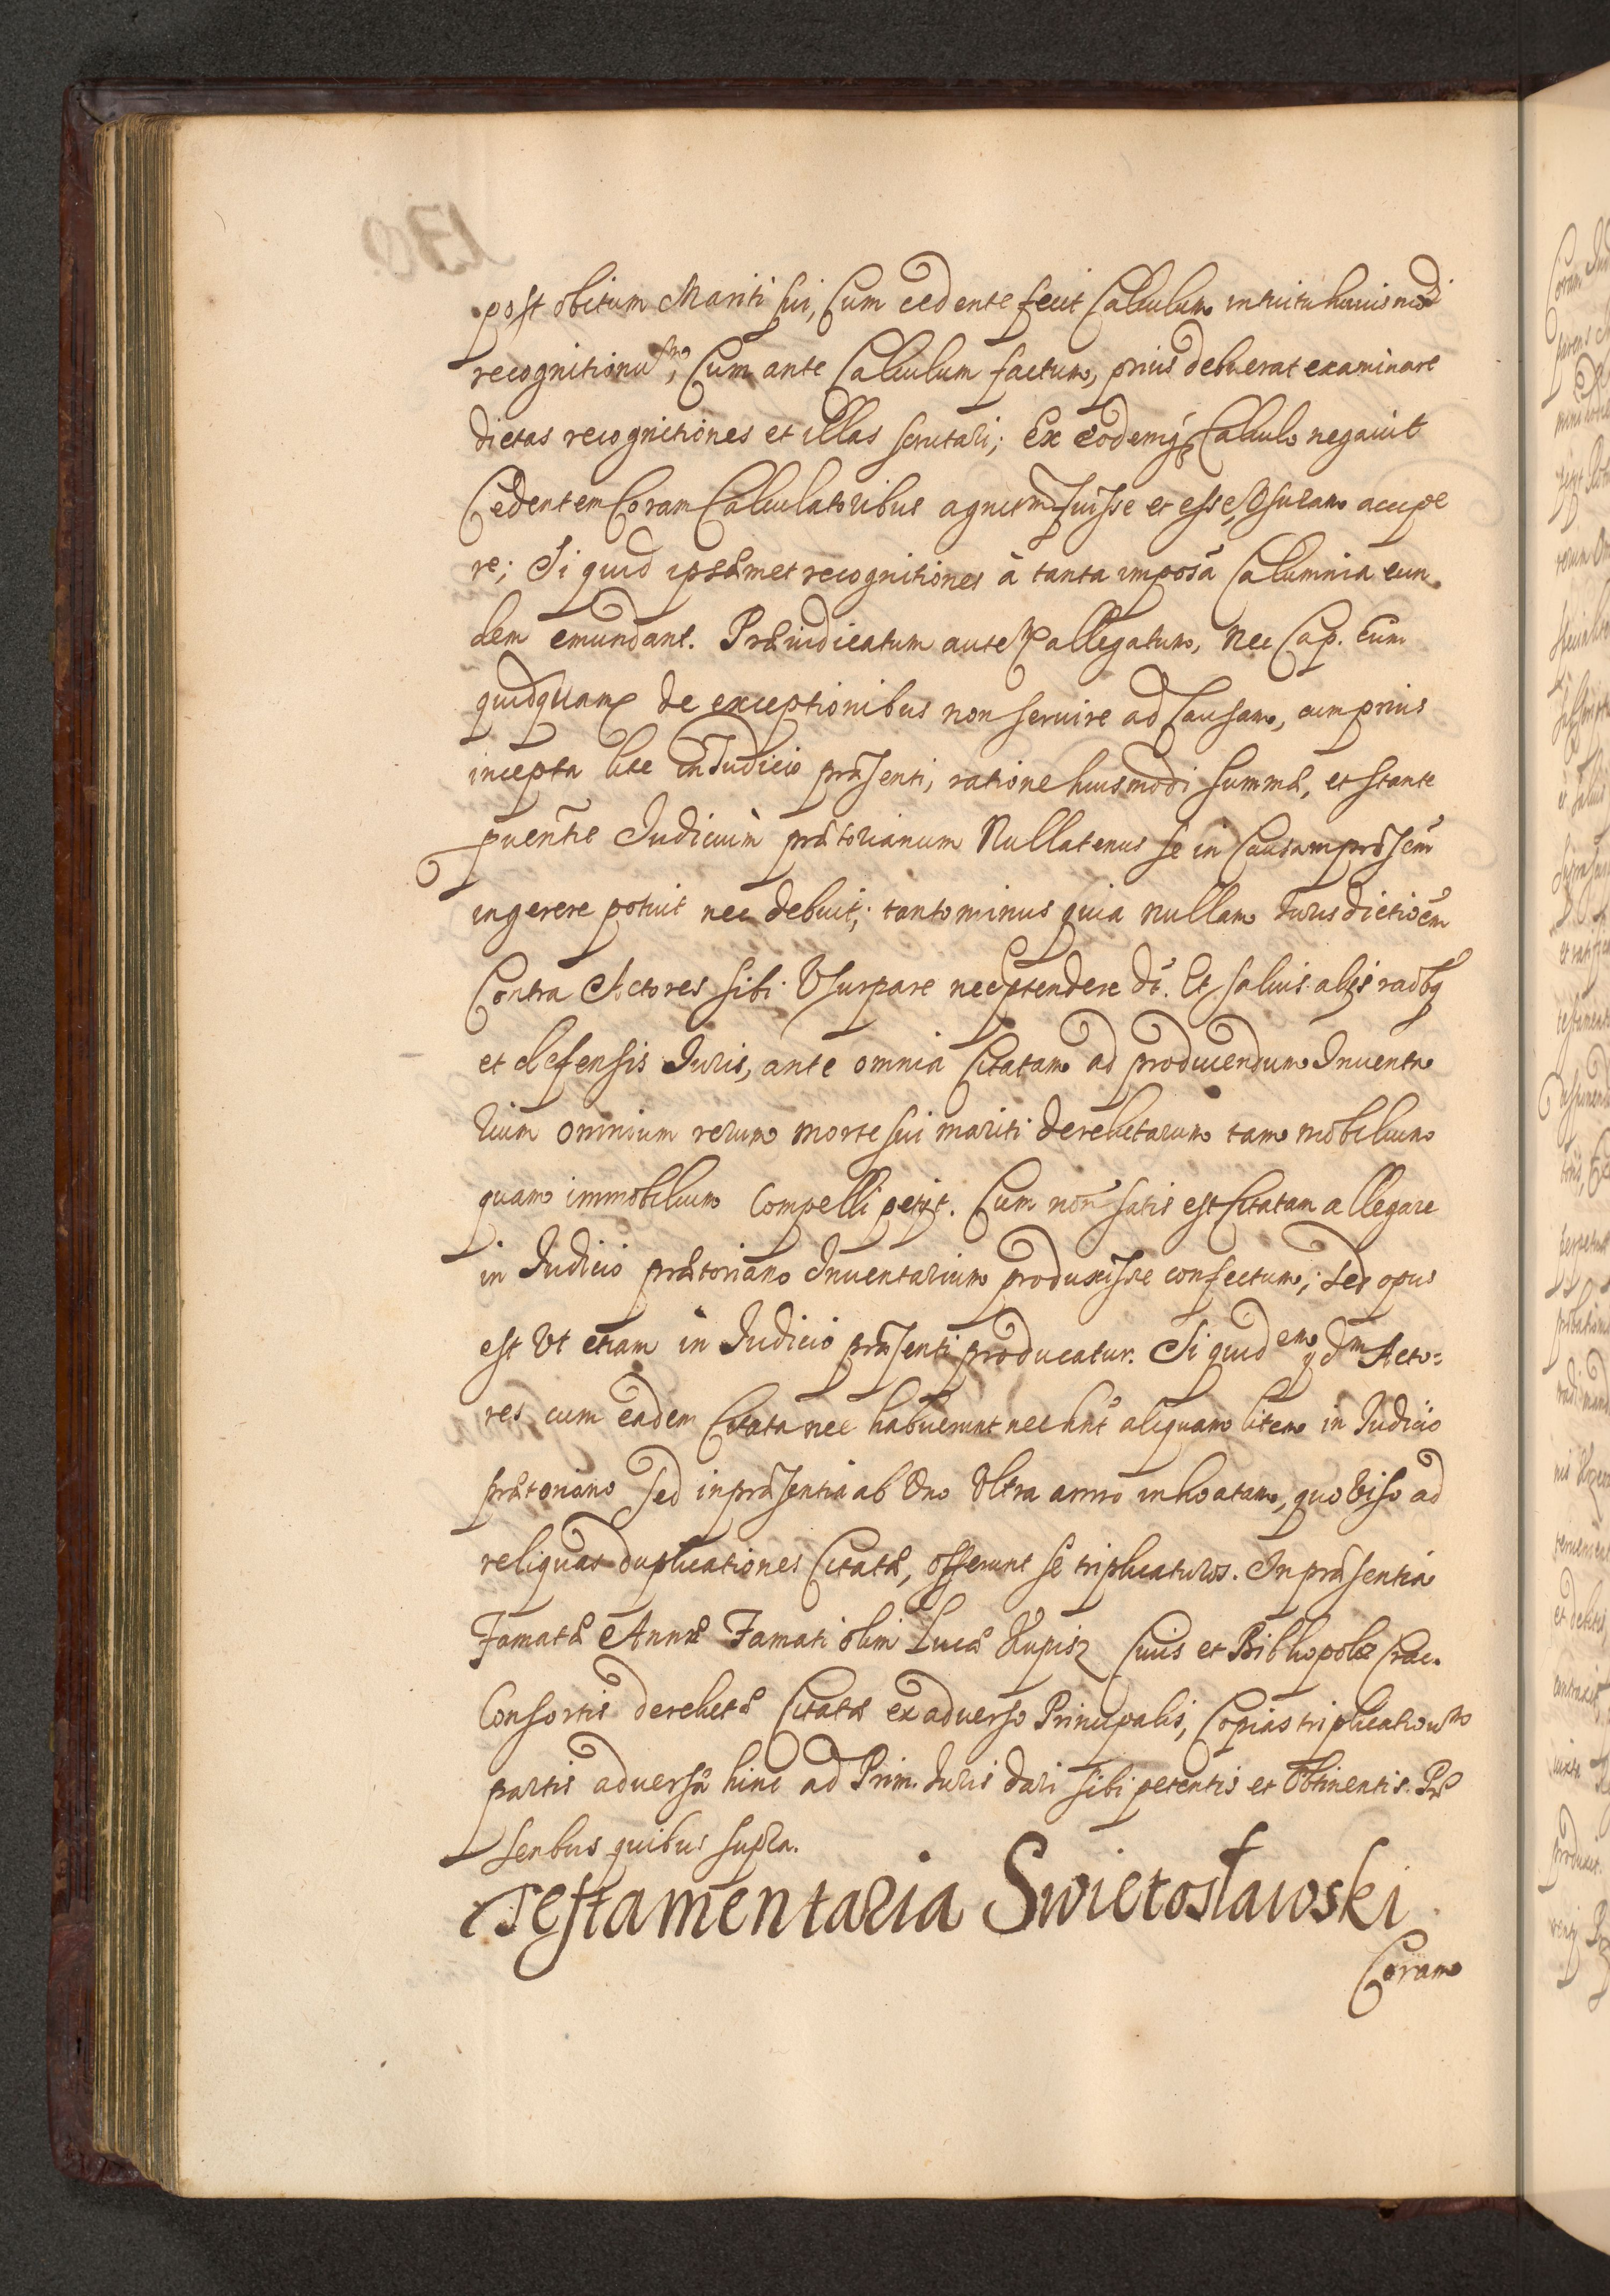 post obitum Mariti sui, Cum cedente fecit Calculum intuitu huiusmodi
recognitionum, Cum ante Calculum factum, prius debuerat examinare
dictas recognitiones et illas scrutari; Ex eodemq Calculo negauit
Cedentem Coram Calculatoribus agnitum fuisse et esse, Vsuram accipe
re; Si quid ipsæmet recognitiones à tanta imposã Calumnia eun
dem emundant. Præiudicatum autem allegatum, Nec Cap. Cum
quidquam de exceptionibus non seruire ad Causam, cum prius
incepta lite in Judicio præsenti, ratione huiusmodi summæ, et stante
Judicium prætorianum Nullatenus se in Causam præsem
ingerere potuit nec debuit; tanto minus quia nullam Jurisdictioem
Contra Actores sibi Vsurpare nec ptendere dt. Et saluis alijs raôbq
et defensis Juris, ante omnia Citatam ad producendum Inuenta
rium omnium rerum morte sui mariti derelictarum tam mobilium
quam immobilium Compelli petijt. Cum non satis est Citatam allegare
in Judicio prætoriano Inuentarium produxisse confectum; sed opus
est Vt etiam in Judicio præsenti producatur. Si quid em ydm Acto=
res cum eadem Citata nec habuerunt nec hnt aliquam litem in Judicio
prætoriano sed in præsentia ab Vno Vltra anno inhoatam, quo Viso ad
reliquas duplicationes Citatæ, offerunt se triplicaturos. In præsentia
Famatæ Annæ Famati olim Lucæ Kupisz Ciuis et Bibliopolæ Crac.
Consortis derelictæ Citatæ ex aduerso Principalis, Copias triplicationum
partis aduersæ hinc ad Prim. Juris dari sibi petentis et Obtinentis. Præ
sentbus quibus supra.
Testamentaria Swiętosławski
Coram